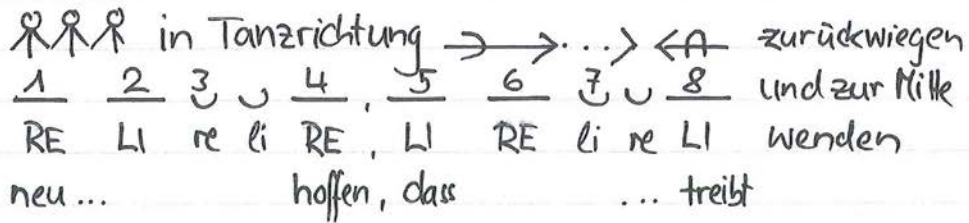 in Tanzrichtung zurückwiegen
1 2 3 4 , 5 6 7 8 und zur Mitte
RE LI re li RE , LI RE li re LI wenden
neu ... hoffen, dass ... treibt